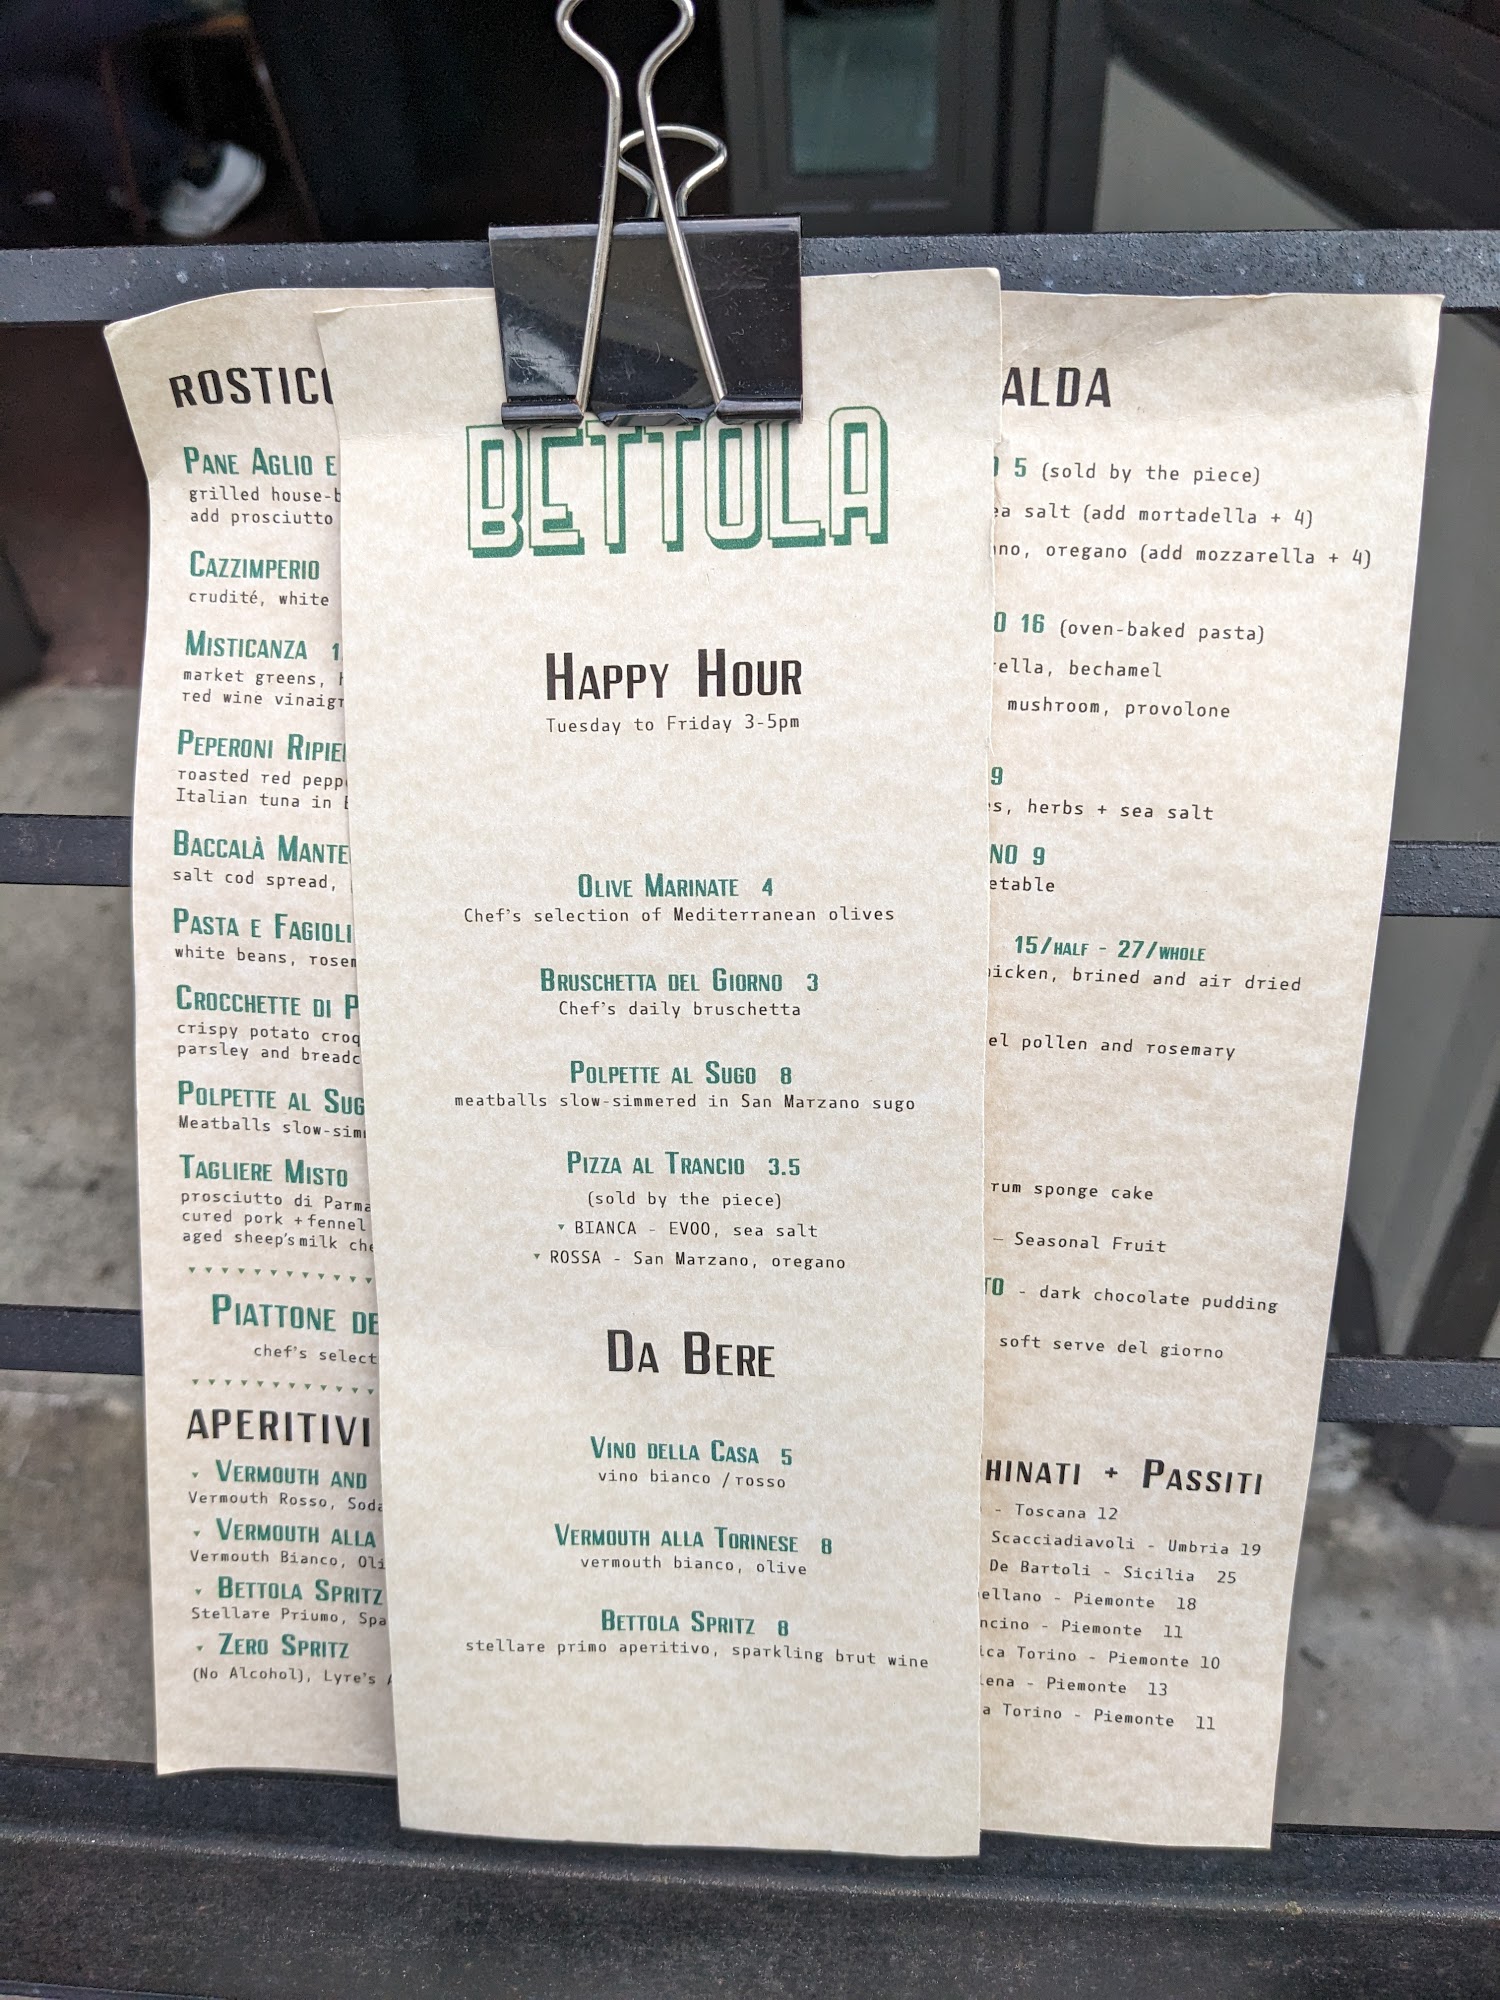 ROSTIC
PANE AGLIO E
grilled house-
add prosciutto
CAZZIMPERIO
crudité, white
MISTICANZA
market greens,
red wine vinaigr
PEPERONI RIPIE
roasted red pepp
Italian tuna in
BACCALÀ MANTE
salt cod spread,
PASTA E FAGIOLI
white beans, rosem
CROCCHETTE DI P
crispy potato croq
parsley and breadc
POLPETTE AL SUG
Meatballs slow-sim
TAGLIERE MISTO
prosciutto di Parma
cured pork + fennel
aged sheep's milk che
PIATTONE DE
chef's select
APERITIVI
VERMOUTH AND
Vermouth Rosso, Soda
VERMOUTH ALLA
Vermouth Bianco, Oli
BETTOLA SPRITZ
Stellare Priumo, Spa
ZERO SPRITZ
(No Alcohol), Lyre's
BETTOLA
HAPPY HOUR
Tuesday to Friday 3-5pm
OLIVE MARINATE 4
Chef's selection of Mediterranean olives
BRUSCHETTA DEL GIORNO 3
Chef's daily bruschetta
POLPETTE AL SUGO 8
meatballs slow-simmered in San Marzano sugo
PIZZA AL TRANCIO 3.5
(sold by the piece)
BIANCA - EVOO, sea salt
ROSSA - San Marzano, oregano
DA BERE
VINO DELLA CASA 5
vino bianco / rosso
VERMOUTH ALLA TORINESE 8
vermouth bianco, olive
BETTOLA SPRITZ 8
stellare primo aperitivo, sparkling brut wine
ALDA
5 (sold by the piece)
ea salt (add mortadella + 4)
no, oregano (add mozzarella + 4)
O 16 (oven-baked pasta)
rella, bechamel
mushroom, provolone
9
s, herbs + sea salt
NO 9
etable
15/HALF - 27/WHOLE
icken, brined and air dried
el pollen and rosemary
rum sponge cake
– Seasonal Fruit
TO - dark chocolate pudding
soft serve del giorno
HINATI + PASSITI
- Toscana 12
Scacciadiavoli - Umbria 19
De Bartoli - Sicilia 25
ellano - Piemonte 18
ncino - Piemonte 11
ica Torino - Piemonte 10
lena - Piemonte 13
a Torino - Piemonte 11